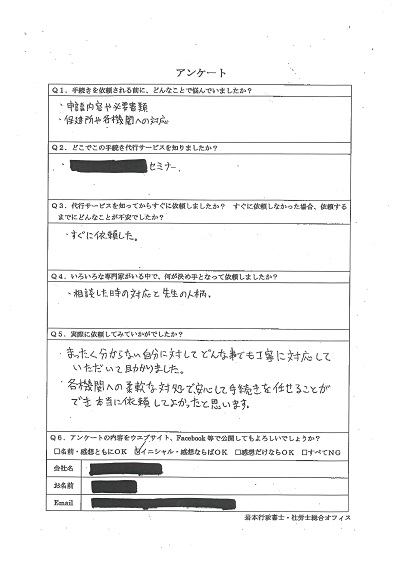 アンケート
Q1．手続きを依頼される前に、どんなことで悩んでいましたか？
・申請内容や必要書類
・保健所や各機関への対応
Q2．どこでこの手続き代行サービスを知りましたか？
・セミナー
Q3．代行サービスを知ってからすぐに依頼しましたか？ すぐに依頼しなかった場合、依頼する
までにどんなことが不安でしたか？
・すぐに依頼した。
Q4．いろいろな専門家がいる中で、何が決め手となって依頼しましたか？
・相談した時の対応と先生の人柄。
Q5．実際に依頼してみていかがでしたか？
・まったく分からない自分に対してどんな事でも丁寧に対応して
いただいて助かりました。
・各機関への柔軟な対処で安心して手続きを任せることが
でき本当に依頼してよかったと思います。
Q6．アンケートの内容をウエブサイト、Facebook等で公開してもよろしいでしょうか？
□名前・感想ともにOK ☑イニシャル・感想ならばOK □感想だけならOK □すべてNG
会社名
お名前
Email
岩本行政書士・社労士総合オフィス